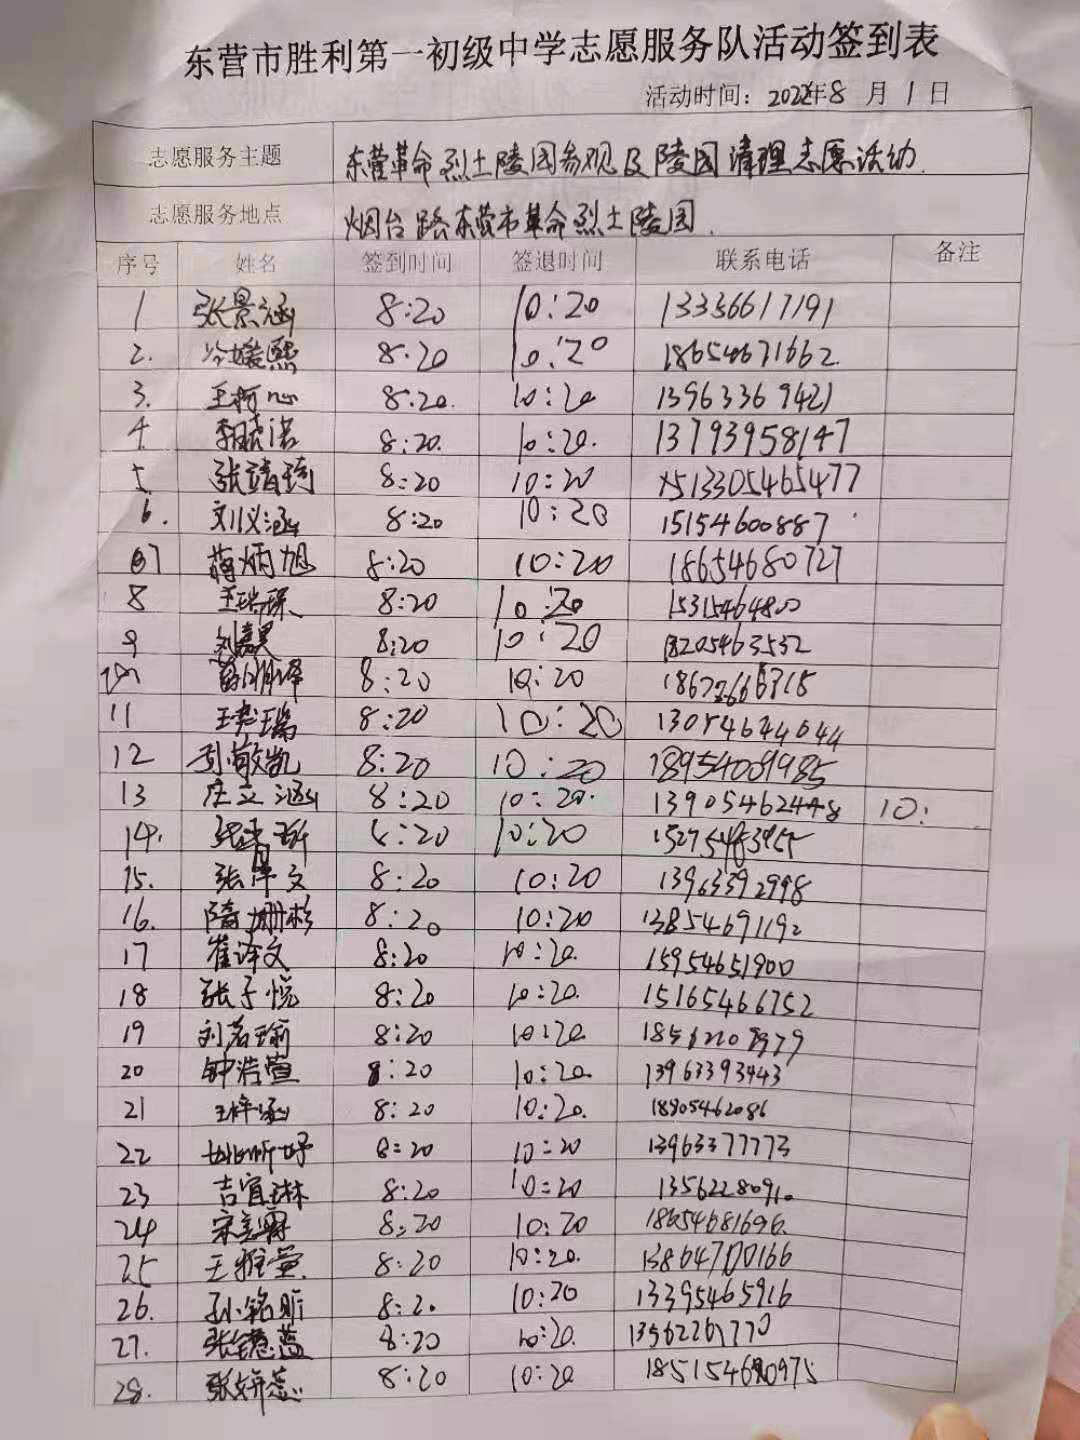 东营市胜利第一初级中学志愿服务队活动签到表
活动时间：2022年8月1日
志愿服务主题 东营革命烈士陵园参观及陵园清理志愿活动.
志愿服务地点 烟台路东营市革命烈士陵园.
序号 姓名 签到时间 签退时间 联系电话 备注
1 张景涵 8:20 10:20 13336617191
2. 冷媛熙 8:20 10:20 18654671662
3. 王柯心 8:20. 10:20 13963369421
4 李晓诺 8:20. 10:20. 13793958147
5 张靖琦 8:20 10:20 513305465477
6. 刘义涵 8:20 10:20 15154600887
7 蒋炳旭 8:20 10:20 18654680727
8 王瑞琛 8:20 10:20 15315464800
9 刘嘉昊 8:20 10:20 18205463532
10 8:20 10:20
11 8:20 10:20 13054644044
12 孙敏凯 8:20 10:20 18954009985
13 庄文涵 8:20 10:20. 13905462448 10:
14. 8:20 10:20
15. 张津文 8:20 10:20 13963392998
16. 隋姗杉 8:20 10:20 13854691192
17 崔译文 8:20 10:20. 15954651900
18 张子悦 8:20 10:20. 15165466752
19 刘若瑜 8:20 10:20
20 钟浩萱 8:20 10:20. 13963393443
21 王梓涵 8:20 10:20. 18905462086
22 姚昕妤 8:20 10:20 13963377773
23 吉宜琳 8:20 10:20 13562280910
24 8:20 10:20 18654681696.
25 王雅萱. 8:20 10:20. 13864700166
26. 孙铭昕 8:20 10:20 13395465916
27. 8:20 10:20. 13562261770
28. 张妍蕊 8:20 10:20